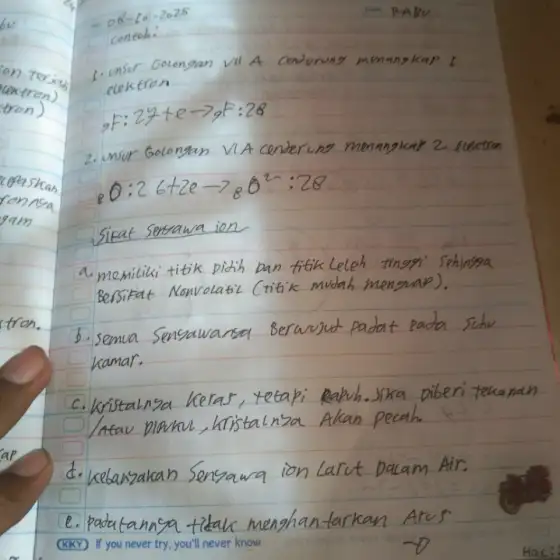 08-10-2025
BABU
Contoh:
1. unsur Golongan VII A cenderung menangkap 1
elektron
9F: 27+e→9F: 28
2. unsur Golongan VI A cenderung menangkap 2 elektron
8O: 2 6+2e → 8O²⁻ : 28
Sifat Senyawa ion
a. memiliki titik Didih Dan titik Leleh tinggi Sehingga
Bersifat Nonvolatil (titik mudah menguap).
b. Semua Senyawanya Berwujud Padat Pada Suhu
kamar.
c. Kristalnya keras, tetapi Rapuh. Jika Diberi tekanan
/Atau Dipukul, kristalnya Akan Pecah.
d. kebanyakan Senyawa ion Larut Dalam Air.
e. Padatannya tidak menghantarkan Arus
KKY If you never try, you'll never know